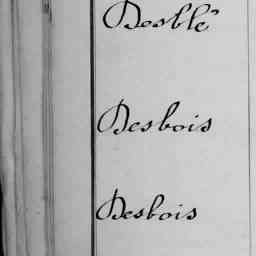 Desblé
Desbois
Desbois